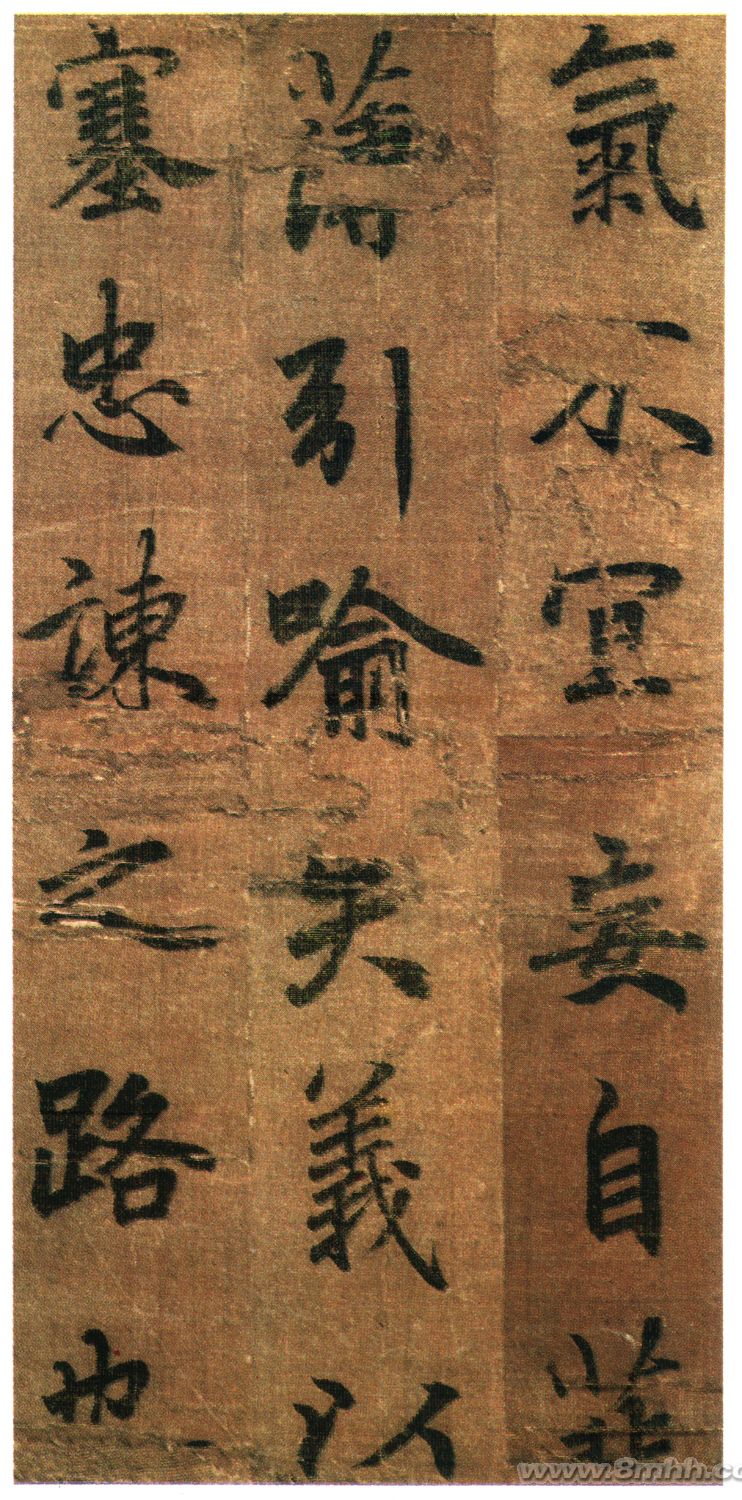 氣不宜妄自菲
薄引喻失義以
塞忠諫之路也
www.8mhh.co